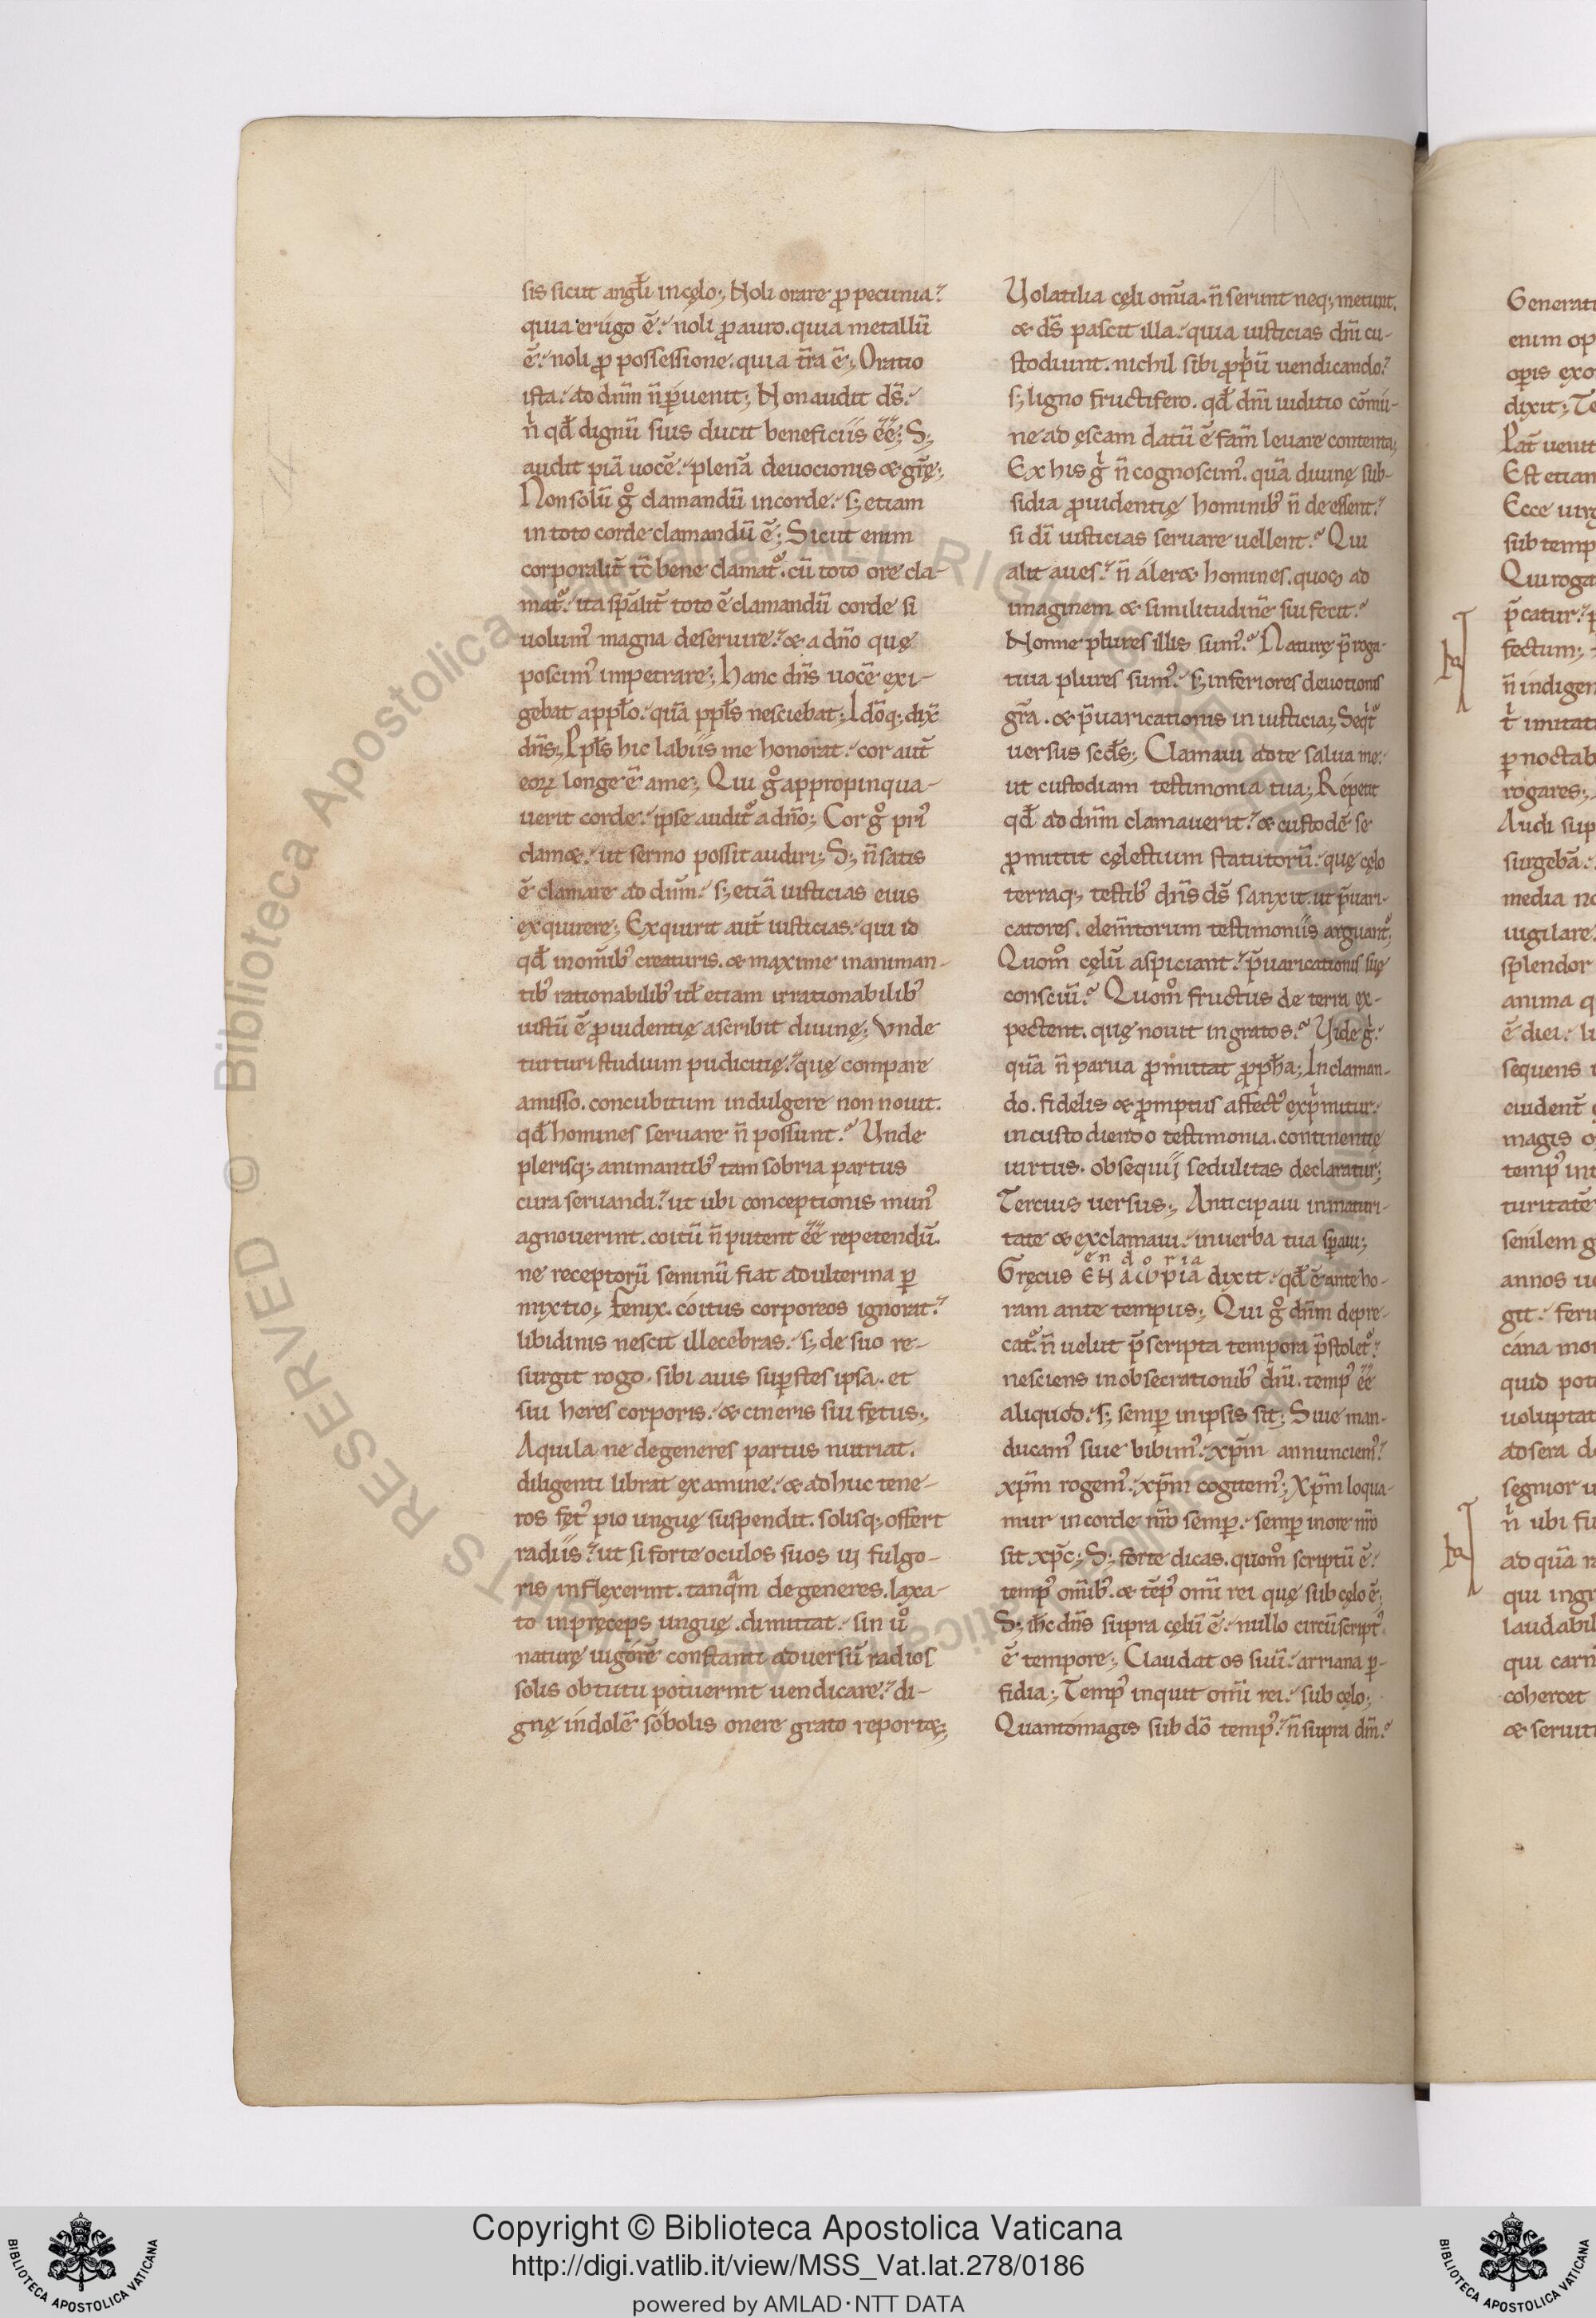 sis sicut angłi in cęlo; Noli orare ꝓ pecunia?
quia erugo ē. noli ꝓ auro. quia metallū
ē. noli ꝓ possessione. quia t̄ra ē; Oratio
ista. ad dn̄m n̄ ꝑuenit; Non audit ds̄.
n̄ qđ dignū suis ducit beneficiis ēē; S;
audit piā uocē. plenā deuocionis & gr̄ę;
Non solū gͦ clamandū in corde. s; etiam
in toto corde clamandū ē; Sicut enim
corporalit̄ tc̄ bene clamat᷑. cū toto ore cla-
mat᷑. ita sp̄alit̄ toto ē clamandū corde si
uolumꝰ magna deseruire. & a dn̄o quę
poscimꝰ impetrare; Hanc dn̄s uocē exi-
gebat appło. quā ppłs nesciebat; Idōq; dix̄
dn̄s; Ppłs hic labiis me honorat. cor aut̄
eoꝝ longe ē a me; Qui gͦ appropinqua-
uerit corde. ipse audit᷑ a dn̄o; Cor gͦ priꝰ
clam&. ut sermo possit audiri; S; n̄ satis
ē clamare ad dn̄m. s; etiā iusticias eius
exquirere; Exquirit aut̄ iusticias. qui id
qđ in omībꝰ creaturis. & maxime in animan-
tibꝰ rationabilibꝰ ł etiam irrationabilibꝰ
iustū ē ꝓuidentię ascribit diuinę; Vnde
turturi studium pudicitię. quę compare
amisso. concubitum indulgere non nouit.
qđ homines seruare n̄ possunt? Unde
plerisq; animantibꝰ tam sobria partus
cura seruandi. ut ubi conceptionis munꝰ
agnouerint. coitū n̄ putent ēē repetendū.
ne receptorū seminū fiat adulterina ꝑ
mixtio; Fenix. coitus corporeos ignorat.
libidinis nescit illecebras. s; de suo re-
surgit rogo. sibi auis suꝑstes ipsa. et
sui heres corporis. & cineris sui fętus;
Aquila ne degeneres partus nutriat.
diligenti librat examine. & adhuc tene-
ros fęt̄ꝰ pio unguę suspendit. solisq; offert
radiis. ut si forte oculos suos ui fulgo-
ris inflexerint. tanq̄m degeneres. laxa-
to in pręceps unguę. dimittat. sin uͦ
naturę uigorē constanti aduersū radios
solis obtutu potuerint uendicare. di-
gnę indolē sobolis onere grato report&;
Uolatilia cęli om̄ia. n̄ serunt neq; metunt.
& ds̄ pascit illa. quia iusticias dn̄i cu-
stodiunt. nichil sibi ꝓpū uendicando.
s; ligno fructifero. qđ dn̄i iuditio cōmu-
ne ad ęscam datū ē fam̄ leuare contenta;
Ex his gͥ n̄ cognoscimꝰ. quā diuinę sub-
sidia ꝓuidentię hominibꝰ n̄ deessent.
si dī iusticias seruare uellent? Qui
alit aues. n̄ aler& homines. quos ad
imaginem & similitudinē sui fecit?
Nonne plures illis sumꝰ? Naturę p̄roga-
tiua plures sumꝰ. s; inferiores deuotionis
gr̄a. & p̄uaricationis iniusticia; Seqͥt᷑
uersus scđs; Clamaui ad te salua me.
ut custodiam testimonia tua; Repetit
qđ ad dn̄m clamauerit. & custodē se
ꝓmittit cęlestium statutorū. quę cęlo
terraq; testibꝰ dn̄s ds̄ sanxit. ut p̄uari-
catores. elem̄torum testimoniis arguant᷑;
Quom̊ cęlū aspiciant. p̄uaricationis suę
conscii? Quom̊ fructus de terra ex-
pectent. quę nouit ingratos? Uide gͥ.
quā n̄ parua ꝓmittat ꝓpħa; In claman-
do. fidelis & ꝓmptus affectꝰ exp̄mitur.
in custodiendo testimonia. continentię
uirtus. obsequii sedulitas declaratur;
Tercius uersus; Anticipaui in maturi-
tate & exclamaui. in uerba tua sꝑaui;
en doria
Gręcus ЄΗ ΑⲰΡΙΑ dixit. qđ ē ante ho-
ram ante tempus; Qui gͦ dn̄m depre-
cat᷑. n̄ uelut p̄scripta tempora p̄stolet᷑.
nesciens in obsecrationibꝰ dn̄i. tempꝰ ēē
aliquod. s; semꝑ in ipsis sit; Siue man-
ducamꝰ siue bibimꝰ. xp̄m annunciemꝰ.
xp̄m rogemꝰ. xp̄m cogitemꝰ; Xp̄m loqua-
mur in corde nr̄o semꝑ. semꝑ in ore nr̄o
sit xp̄c; S; forte dicas. quom̊ scriptū ē.
tempꝰ omībꝰ. & tēpꝰ omī rei quę sub cęlo ē;
S; ihc̄ dn̄s supra cęlū ē. nullo circūscriptꝰ
ē tempore; Claudat os suū. arriana ꝑ-
fidia; Tempꝰ inquit omī rei. sub cęlo;
Quanto magis sub dō tempꝰ. n̄ supra dm̄?
Generati
enim op
opis exo
dixit; Te
Pat̄ uenit
Est etiam
Ecce uirg
sub temp
Qui roga
p̄catur. p
fectum;
n̄ indigen
imitati
ꝑ noctab
rogares;
Audi sup
surgebā.
media no
uigilare.
splendor
anima q
ē diei. lu
sequens
euident̄
magis o
tempꝰ int
turitatē
senilem g
annos uo
git. feru
cana mor
quid pote
uoluptat
ad sera de
segnior u
n̄ ubi fu
ad quā n
qui ingr
laudabil
qui carn
cohercet
& seruiti
Copyright © Biblioteca Apostolica Vaticana
http://digi.vatlib.it/view/MSS_Vat.lat.278/0186
powered by AMLAD·NTT DATA
BIBLIOTECA APOSTOLICA VATICANA
BIBLIOTECA APOSTOLICA VATICANA
© Biblioteca Apostolica Vaticana ALL RIGHTS RESERVED